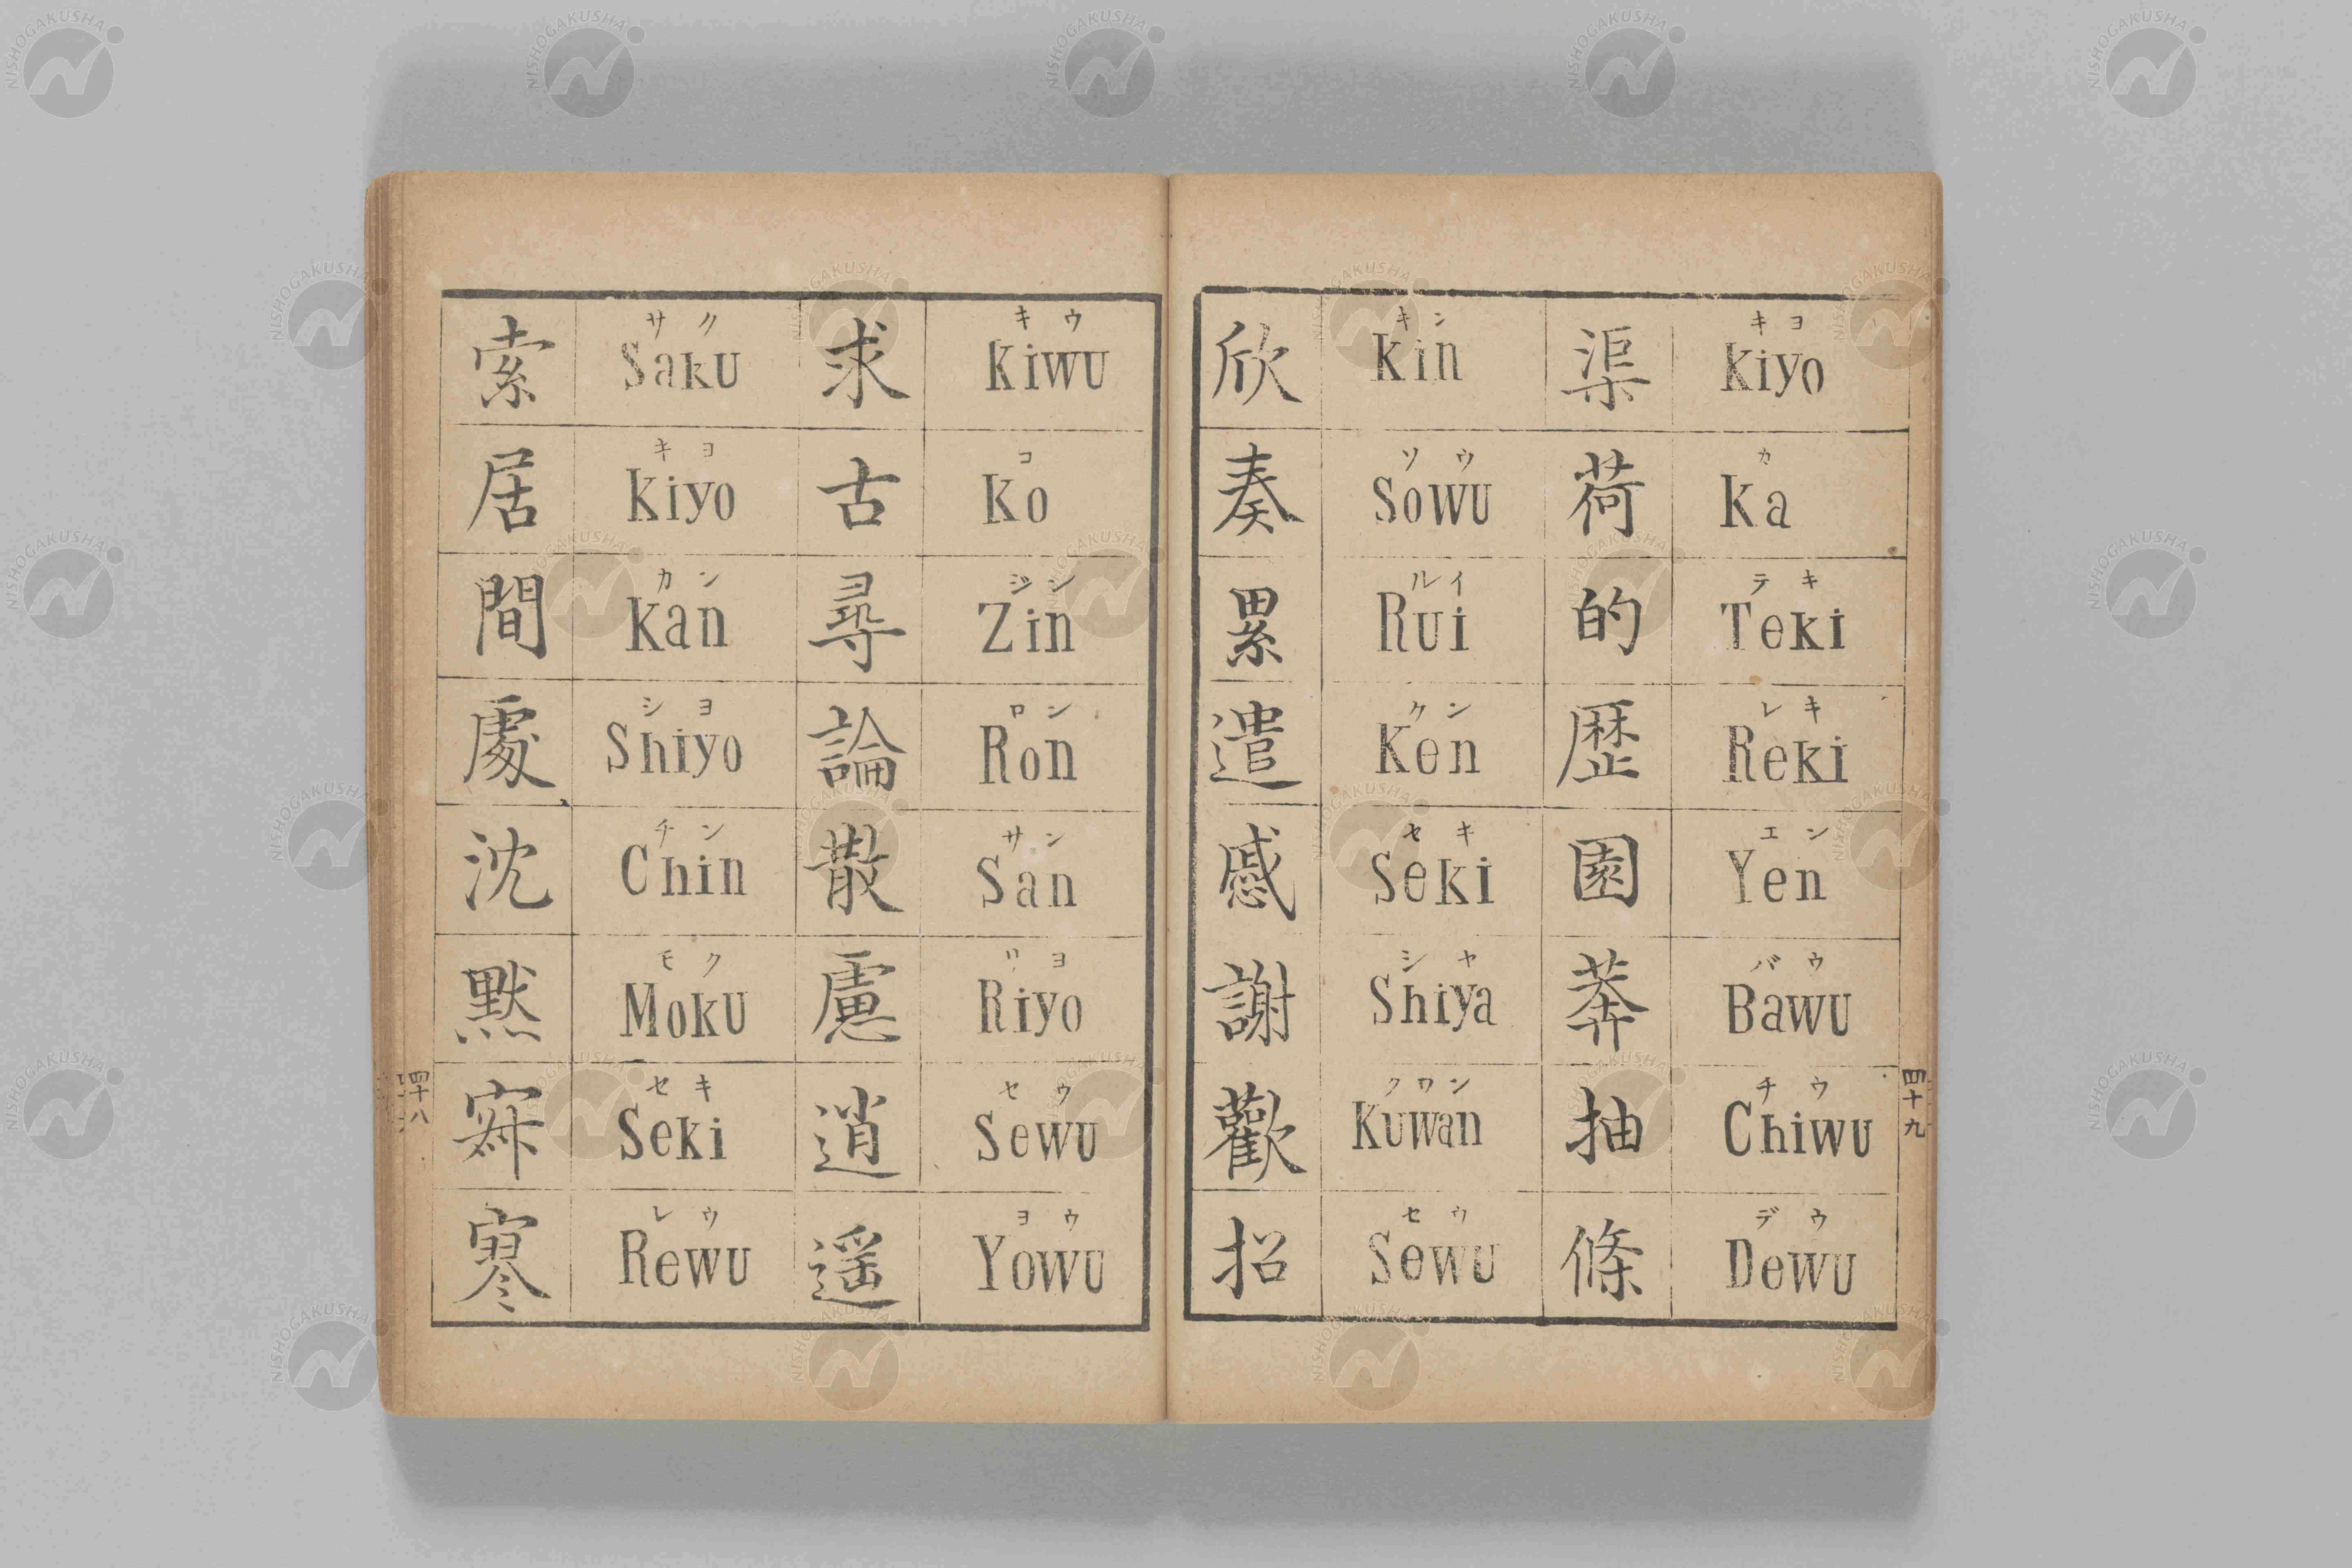 索 サク Saku
居 キヨ Kiyo
間 カン Kan
處 シヨ Shiyo
沈 チン Chin
默 モク Moku
寂 セキ Seki
寥 レウ Rewu
求 キウ Kiwu
古 コ Ko
尋 ジン Zin
論 ロン Ron
散 サン San
慮 リヨ Riyo
逍 セウ Sewu
遥 ヨウ Yowu
四十八
欣 キン Kin
奏 ソウ Sowu
累 ルイ Rui
遣 ケン Ken
慼 セキ Seki
謝 シヤ Shiya
歡 クワン Kuwan
招 セウ Sewu
渠 キヨ Kiyo
荷 カ Ka
的 テキ Teki
歷 レキ Reki
園 エン Yen
莽 バウ Bawu
抽 チウ Chiwu
條 デウ Dewu
四十九
NISHOGAKUSHA